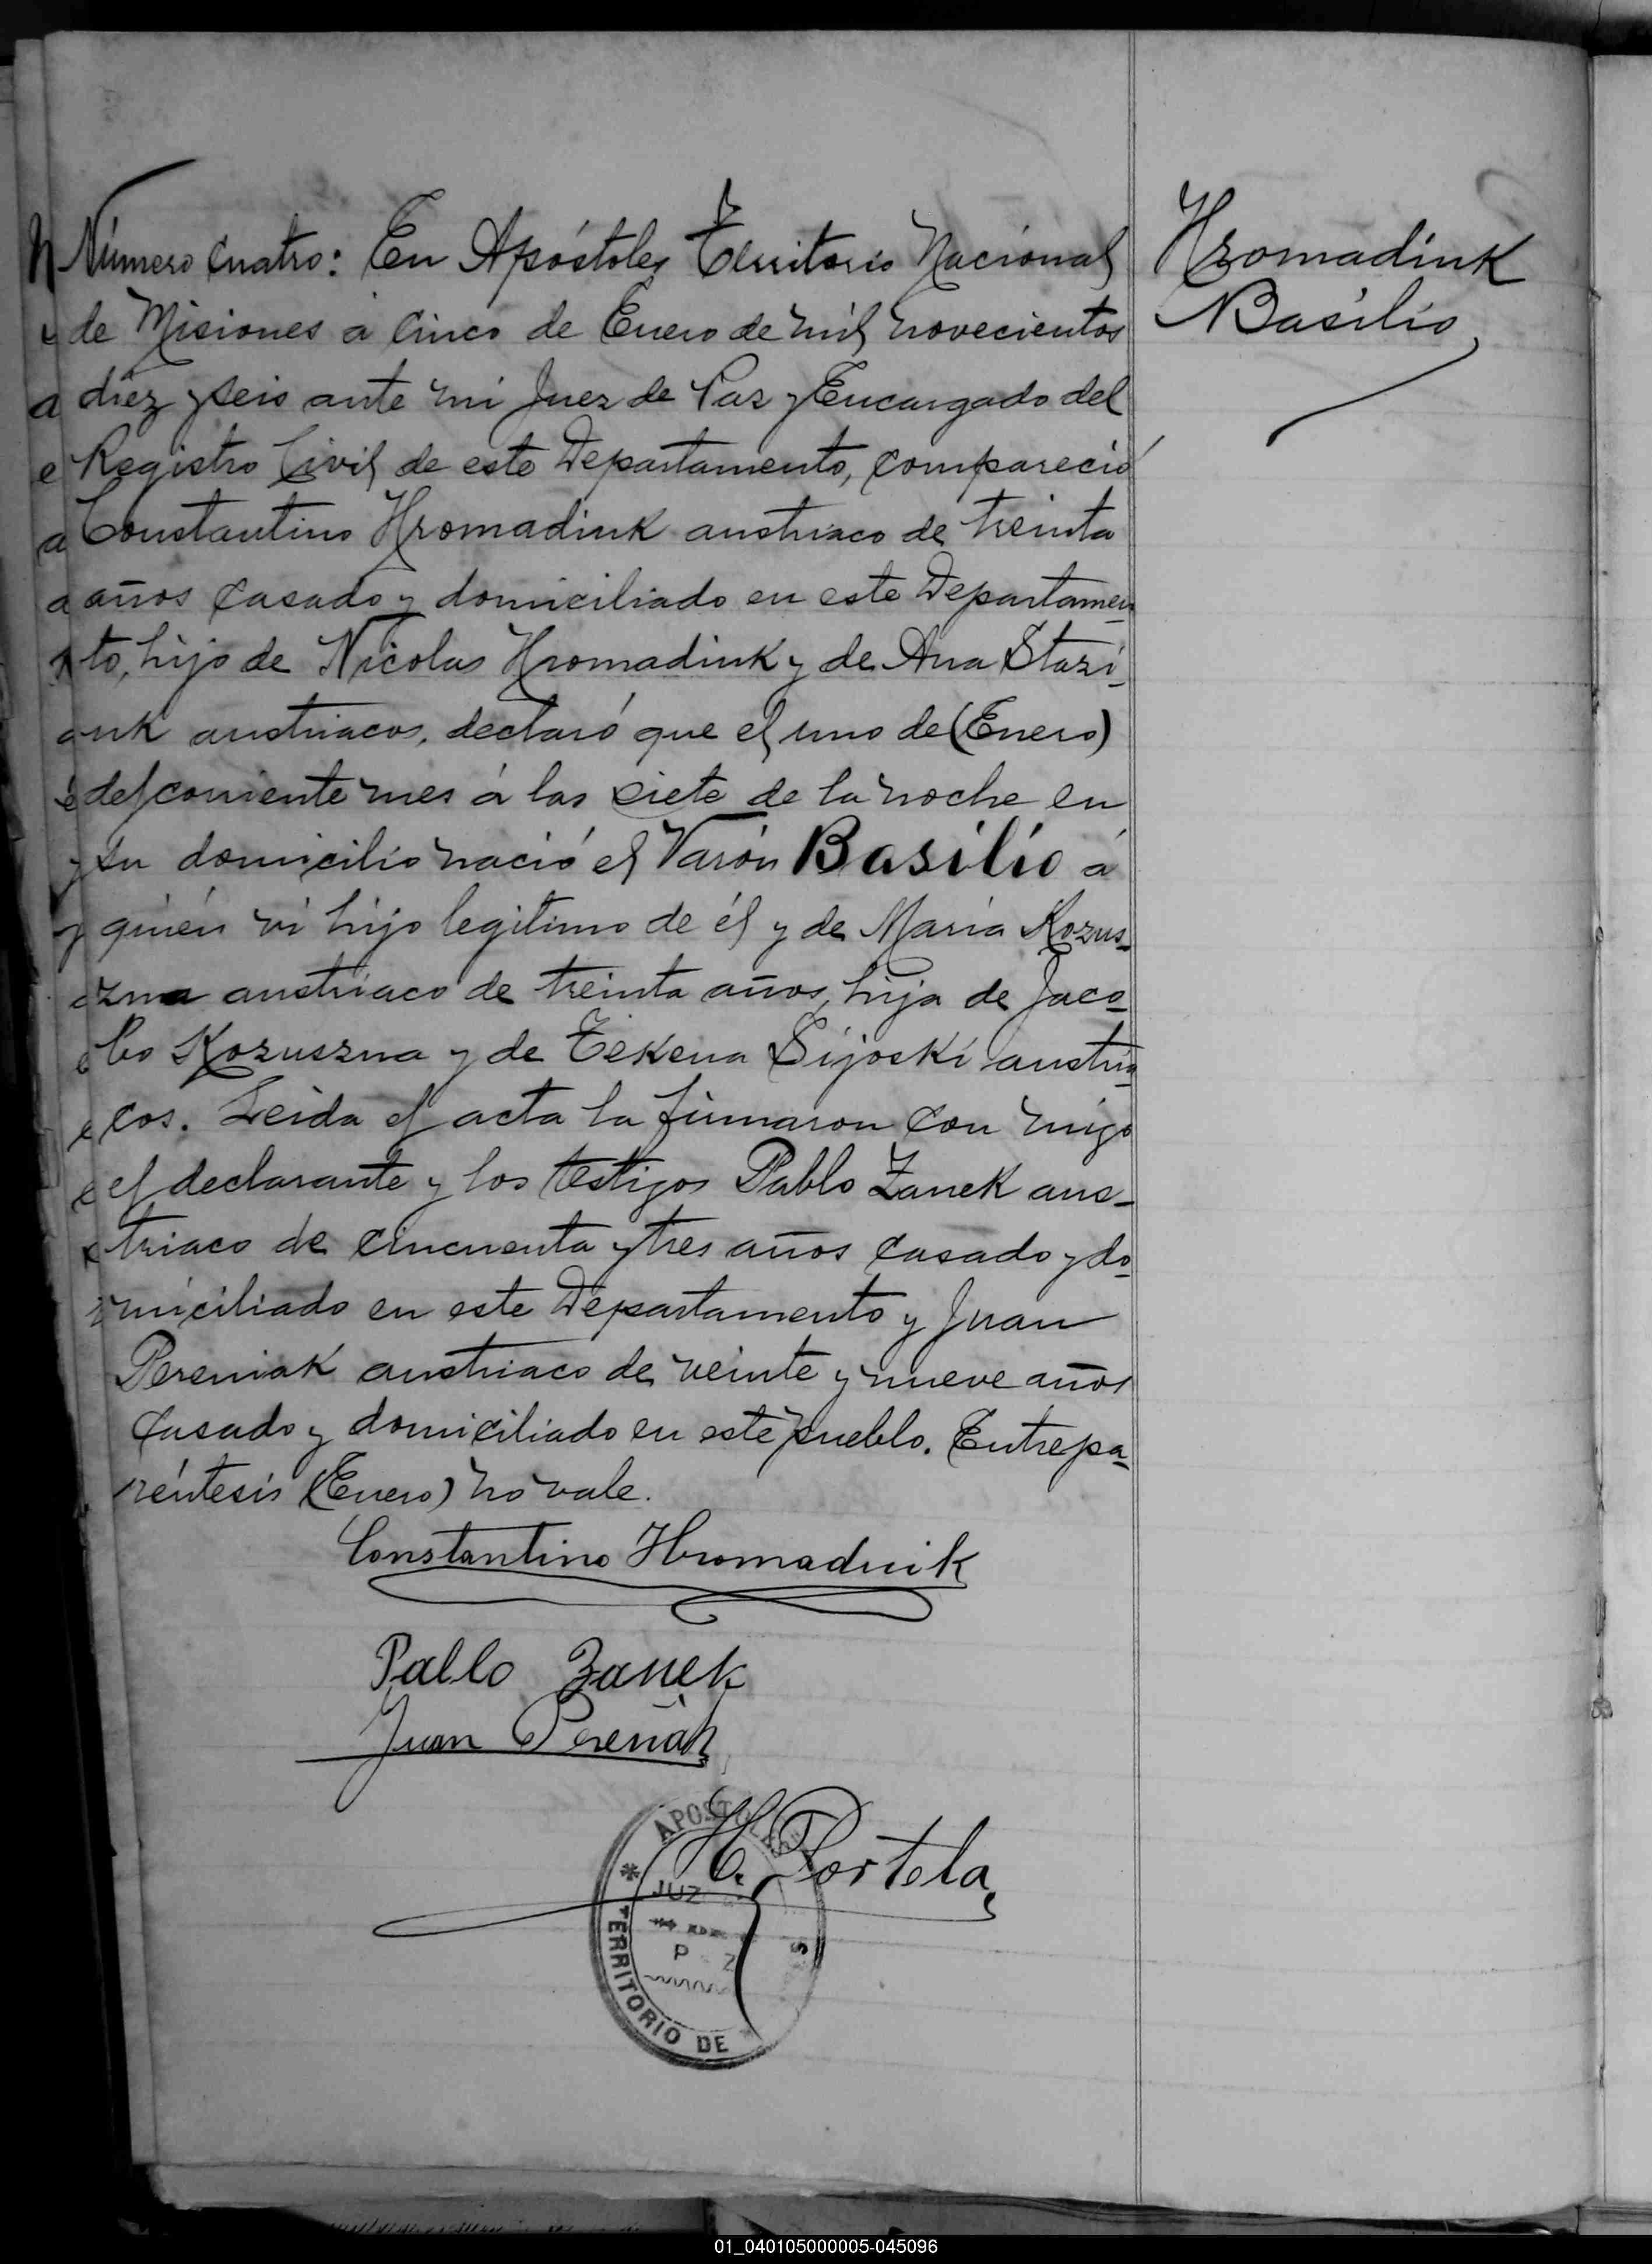 Número cuatro: En Apóstoles Territorio Nacional
de Misiones á cinco de Enero de mil novecientos
diez y seis ante mi Juez de Paz y Encargado del
Registro Civil de este Departamento, compareció
Constantino Hromadink austriaco de treinta
años casado y domiciliado en este Departamen
to, hijo de Nicolas Hromadink y de Ana Stazi_
nk austriacos, declaró que el uno de (Enero)
del corriente mes á las siete de la noche en
su domicilio nació el Varón Basilio á
quién vi hijo legitimo de él y de Maria Kozus_
zna austriaco de treinta años, hija de Jaco_
bo Kozuszna y de Tekena Sijoski austria
cos. Leida el acta la firmaron con migo
el declarante y los testigos Pablo Zanek aus_
triaco de cincuenta y tres años casado y do_
miciliado en este Departamento y Juan
Pereniak austriaco de veinte y nueve años
casado y domiciliado en este pueblo. Entrepa_
réntesis (Enero) no vale.
Constantino Hromadnik
Pablo Zanek
Juan Pereñak
H. Portela
APOSTOLES
JUZ
P Z
TERRITORIO DE
Hromadink
Basilio
01_040105000005-045096